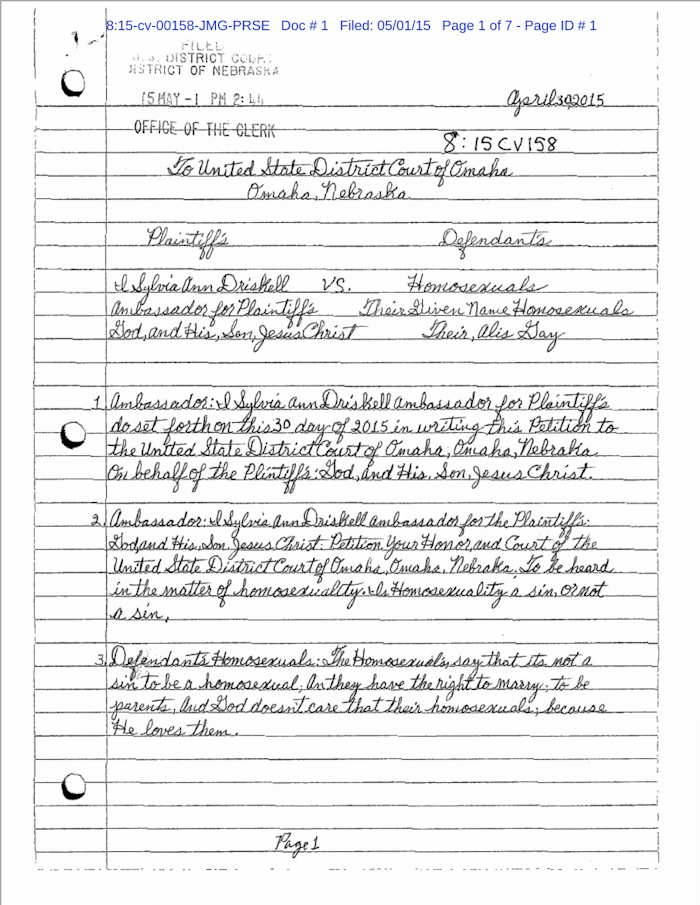 8:15-cv-00158-JMG-PRSE Doc # 1 Filed: 05/01/15 Page 1 of 7 - Page ID # 1
FILED
U.S. DISTRICT COURT
DISTRICT OF NEBRASKA
15 MAY -1 PM 2:44
April 30 2015
OFFICE OF THE CLERK
8:15CV158
To United State District Court of Omaha
Omaha, Nebraska
Plaintiff's Defendant's
I Sylvia Ann Driskell VS. Homosexuals
Ambassador for Plaintiff's Their Given Name Homosexuals
God, and His, Son, Jesus Christ Their, Alis Gay
1 Ambassador: I Sylvia Ann Driskell Ambassador for Plaintiff's
do set forth on this 30 day of 2015 in writing this Petition to
the United State District Court of Omaha, Omaha, Nebraka
On behalf of the Plintiff's: God, and His, Son, Jesus Christ.
2. Ambassador: I Sylvia Ann Driskell ambassador for the Plaintiff's:
God, and His, Son, Jesus Christ. Petition Your Honor, and Court of the
United State District Court of Omaha, Omaha, Nebraka. To be heard
in the matter of homosexuality. Is Homosexuality a sin, or not
a sin,
3. Defendants Homosexuals: The Homosexuals, say that its not a
sin to be a homosexual; An they have the right to marry; to be
parents, And God doesnt care that their homosexuals; because
He loves them.
Page 1